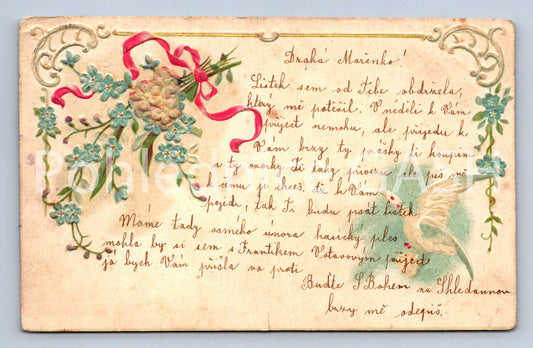 Drahá Mařenko!
Lístek sem od Tebe obdržela,
který mě potěšil. V neděli k Vám
přijeť nemohu, ale přijedu k
Vám brzy ty prášky ti koupim
a ty vzorky Ti taky přivezu ale piš mě
k čemu je chceš, až k Vám
pojedu, tak Ti budu psát lístek
Máme tady samého února hasický ples
mohla by si sem s Frantíkem Votavovým přijet
já bych Vám přišla na proti
Buďte S Bohem na Shledannou
brzy mě odepiš.